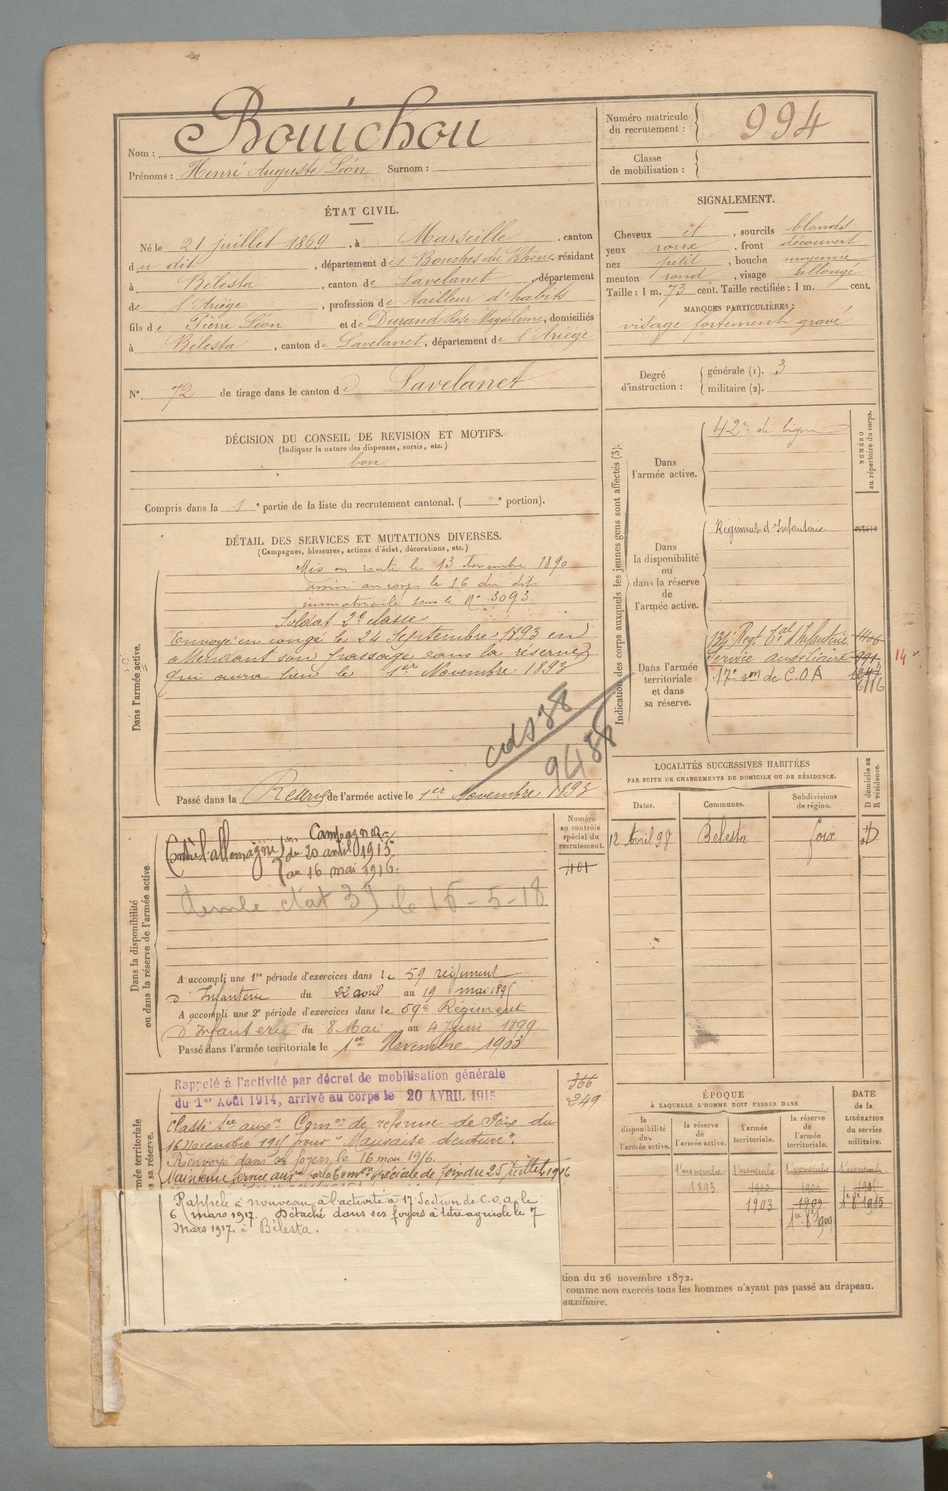 Nom : Bouichou
Prénoms : Henri Auguste Léon Surnom :
Numéro matricule du recrutement : 994
Classe de mobilisation :
ÉTAT CIVIL.
Né le 21 juillet 1869, à Marseille, canton
du dit, département des Bouches du Rhône, résidant
à Bélesta, canton de Lavelanet, département
de l'Ariège, profession de tailleur d'habits
fils de Pierre Léon et de Durand Rose Magdeleine, domiciliés
à Bélesta, canton de Lavelanet, département de l'Ariège
N° 72 de tirage dans le canton de Lavelanet
SIGNALEMENT.
Cheveux et, sourcils blonds
yeux roux, front découvert
nez petit, bouche moyenne
menton rond, visage allongé
Taille : 1 m. 73 cent. Taille rectifiée : 1 m. cent.
MARQUES PARTICULIÈRES :
visage fortement gravé
Degré d'instruction : générale (1). 3
militaire (2).
DÉCISION DU CONSEIL DE REVISION ET MOTIFS.
(Indiquer la nature des dispenses, sursis, etc.)
bon
Compris dans la 1e partie de la liste du recrutement cantonal. ( e portion).
DÉTAIL DES SERVICES ET MUTATIONS DIVERSES.
(Campagnes, blessures, actions d'éclat, décorations, etc.)
Dans l'armée active.
Mis en route le 13 Novembre 1890
arrivé au corps le 16 du dit
immatriculé sous le N° 3093
Soldat 2e classe
Envoyé en congé le 24 Septembre 1893 en
attendant son passage dans la réserve
qui aura lieu le 1er Novembre 1893
Passé dans la Réserve de l'armée active le 1er Novembre 1893
Indication des corps auxquels les jeunes gens sont affectés (3).
NUMÉRO au répertoire du corps.
Dans l'armée active.
42e de ligne
Dans la disponibilité ou dans la réserve de l'armée active.
Régiment d'Infanterie
Dans l'armée territoriale et dans sa réserve.
Reg. Tal d'Infanterie
Service auxiliaire
17e son de C.O.A 6116
14
LOCALITÉS SUCCESSIVES HABITÉES
PAR SUITE DE CHANGEMENTS DE DOMICILE OU DE RÉSIDENCE.
Dates. Communes. Subdivisions de région. D domicile ou R résidence.
12 Avril 98 Bélesta Foix D
Dans la disponibilité ou dans la réserve de l'armée active
Numéro au contrôle spécial du recrutement.
Campagne
Contre l'allemagne du 20 avril 1915
au 16 mai 1916.
A accompli une 1re période d'exercices dans le 59 régiment
d'Infanterie du 22 avril au 19 mai
A accompli une 2e période d'exercices dans le 59e Régiment
d'Infanterie du 8 Mai au 4 Juin 1899
Passé dans l'armée territoriale le 1er Novembre 1903
Rappelé à l'activité par décret de mobilisation générale
du 1er Août 1914, arrivé au corps le 20 AVRIL 1915
366
249
Classé Sce auxre Comon de réforme de Foix du
16 Novembre 1915 pour "Mauvaise denture".
Renvoyé dans ses foyers le 16 mai 1916.
Maintenu service auxre par la Comon spéciale de Foix du 25 Juillet 1916
Rappelé à nouveau à l'activité à 17 Section de C.O.A. le
6 mars 1917. Détaché dans ses foyers à titre agricole le 7
Mars 1917. à Bélesta.
ÉPOQUE
À LAQUELLE L'HOMME DOIT PASSER DANS
la disponibilité de l'armée active. la réserve de l'armée active. l'armée territoriale. la réserve de l'armée territoriale.
DATE de la LIBÉRATION du service militaire.
1 novembre 1 novembre 1 novembre 1 novembre
1893
1903
tion du 26 novembre 1872.
comme non exercés tous les hommes n'ayant pas passé au drapeau.
auxiliaire.